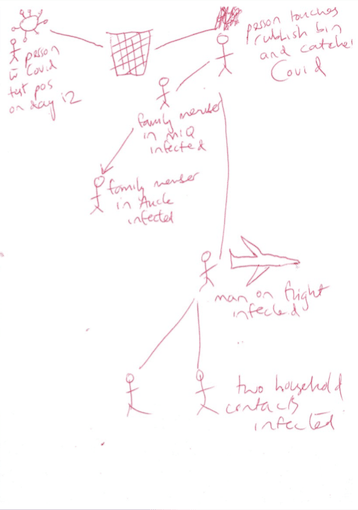 person
w̄ Covid
test pos
on day 12
person touches
rubbish bin
and catches
Covid
family member
in MIQ
infected
family member
in Auck
infected
man on flight
infected
two household
contacts
infected